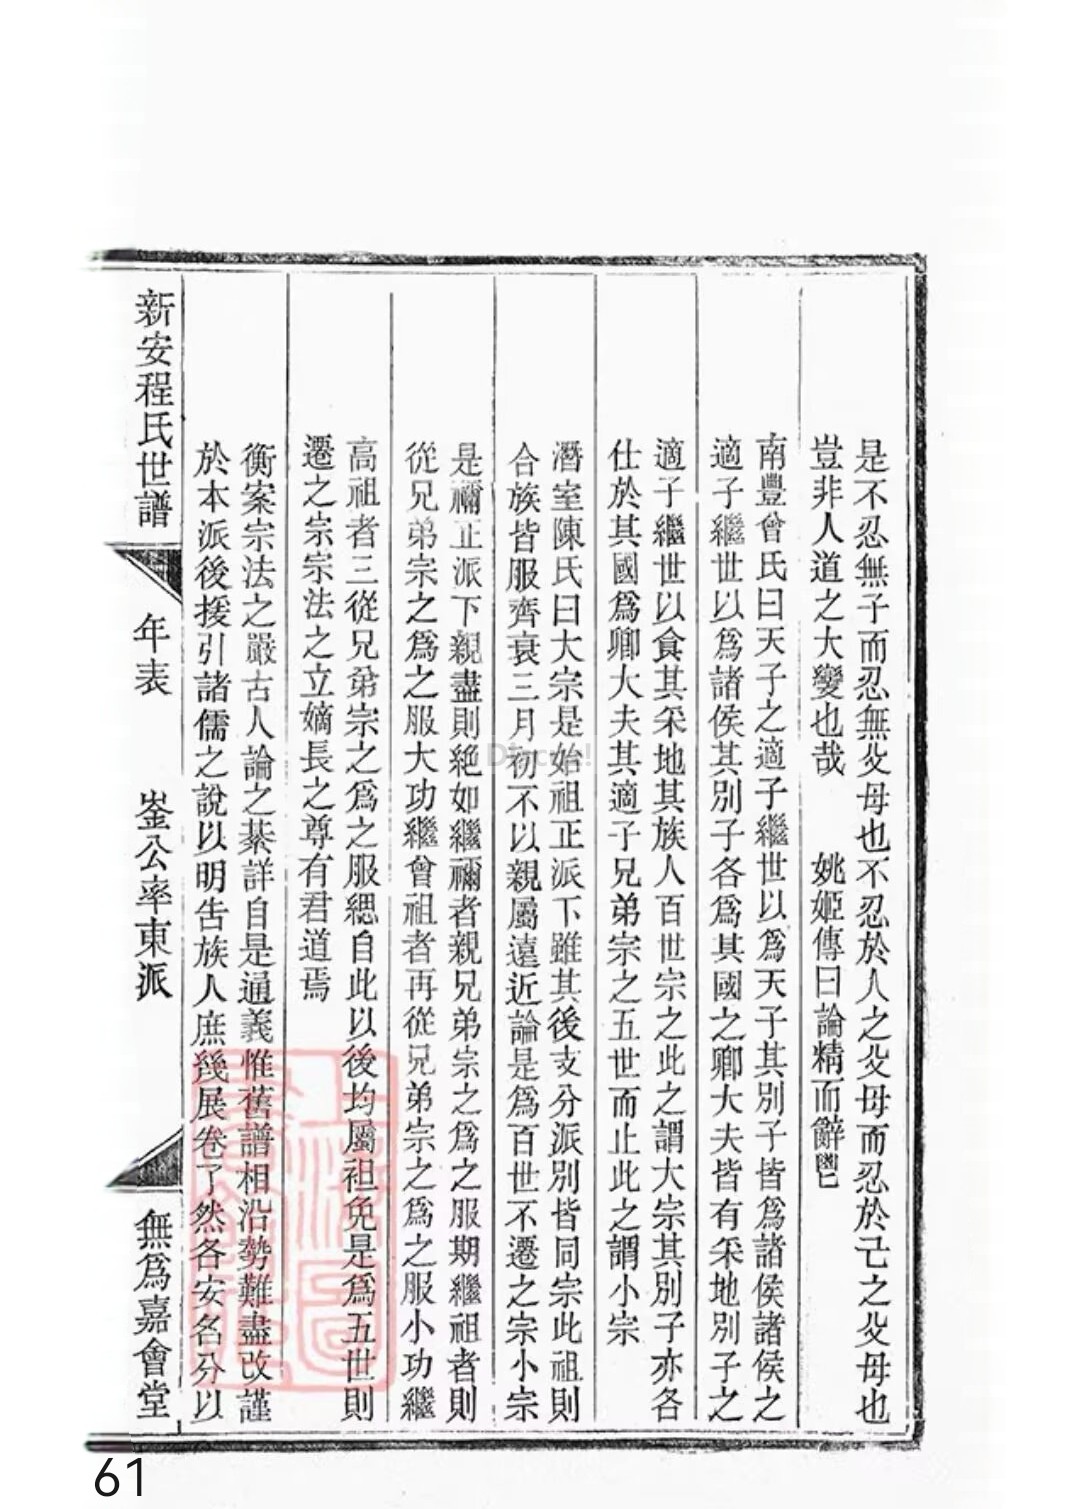 是不忍無子而忍無父母也不忍於人之父母而忍於己之父母也
豈非人道之大變也哉　姚姬傳曰論精而辭
南豐曾氏曰天子之適子繼世以爲天子其別子皆爲諸侯諸侯之
適子繼世以爲諸侯其別子各爲其國之卿大夫皆有采地別子之
適子繼世以食其采地其族人百世宗之此之謂大宗其別子亦各
仕於其國爲卿大夫其適子兄弟宗之五世而止此之謂小宗
潛室陳氏曰大宗是始祖正派下雖其後支分派別皆同宗此祖則
合族皆服齊衰三月初不以親屬遠近論是爲百世不遷之宗小宗
是禰正派下親盡則絶如繼禰者親兄弟宗之爲之服期繼祖者則
從兄弟宗之爲之服大功繼曾祖者再從兄弟宗之爲之服小功繼
高祖者三從兄弟宗之爲之服緦自此以後均屬袒免是爲五世則
遷之宗宗法之立嫡長之尊有君道焉
衡案宗法之嚴古人論之綦詳自是通義惟舊譜相沿勢難盡改謹
於本派後援引諸儒之說以明告族人庶幾展卷了然各安名分以
新安程氏世譜
年表
崟公率東派
無爲嘉會堂
61